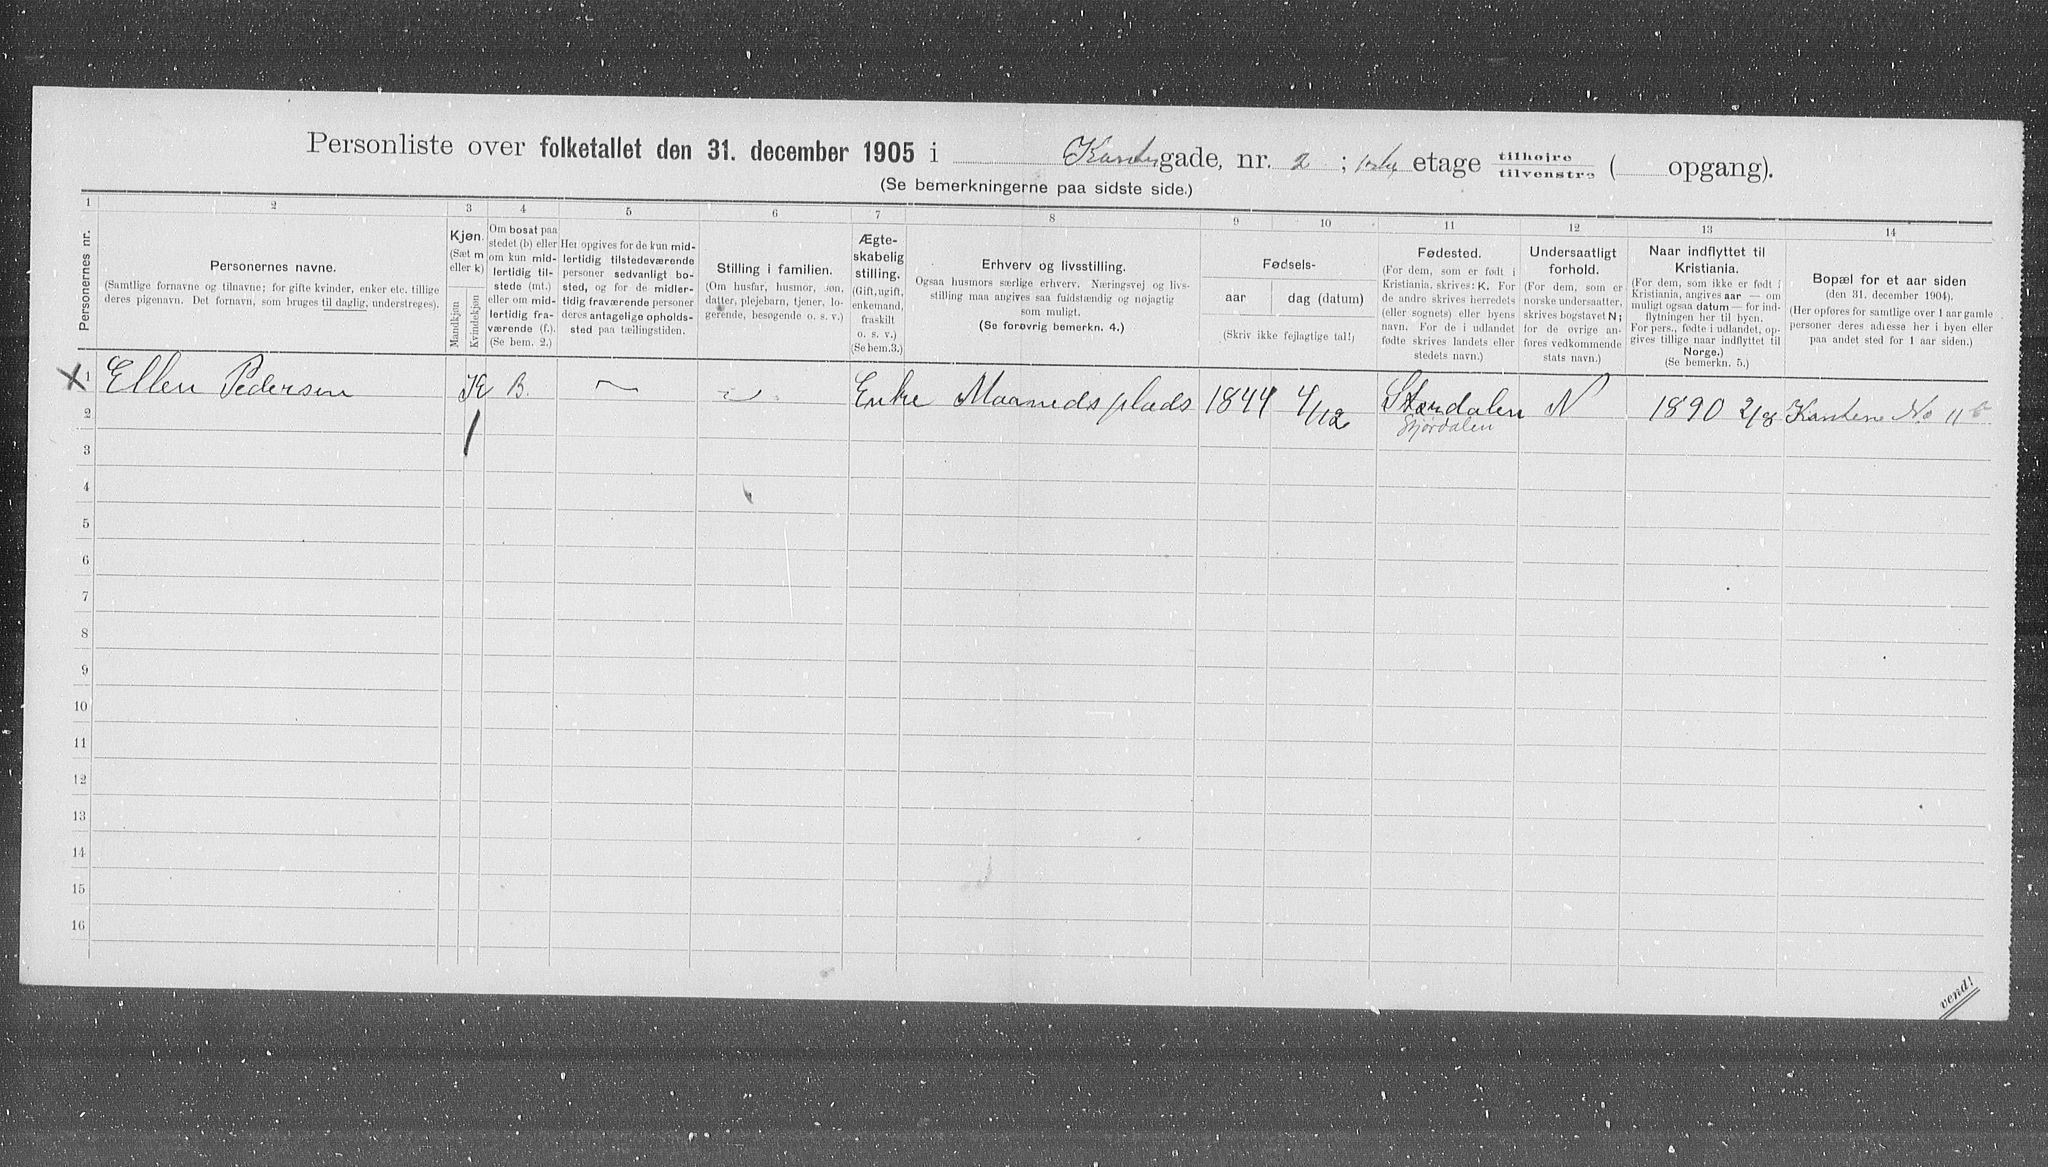 Personliste over folketallet den 31. december 1905 i gade, nr. 2; etage tilhøjre tilvenstre ( opgang).
(Se bemerkningerne paa sidste side.)
1 2 3 4 5 6 7 8 9 10 11 12 13 14
Personernes nr.
Personernes navne.
(Samtlige fornavne og tilnavne; for gifte kvinder, enker etc. tillige
deres pigenavn. Det fornavn, som bruges til daglig, understreges).
Kjøn.
(Sæt m
eller k)
Mandkjøn
Kvindekjøn
Om bosat paa
stedet (b) eller
om kun mid-
lertidig til-
stede (mt.)
eller om mid-
lertidig fra-
værende (f.).
(Se bem. 2.)
Her opgives for de kun mid-
lertidig tilstedeværende
personer sedvanligt bo-
sted, og for de midler-
tidig fraværende personer
deres antagelige opholds-
sted paa tællingstiden.
Stilling i familien.
(Om husfar, husmor, søn,
datter, plejebarn, tjener, lo-
gerende, besøgende o. s. v.)
Ægte-
skabelig
stilling.
(Gift, ugift,
enkemand,
fraskilt
o. s. v.)
(Se bem.3.)
Erhverv og livsstilling.
Ogsaa husmors særlige erhverv. Næringsvej og livs-
stilling maa angives saa fuldstændig og nøjagtig
som muligt.
(Se forøvrig bemerkn. 4.)
Fødsels-
aar dag (datum)
(Skriv ikke fejlagtige tal!)
Fødested.
(For dem, som er født i
Kristiania, skrives: K. For
de andre skrives herredets
(eller sognets) eller byens
navn. For de i udlandet
fødte skrives landets eller
stedets navn.)
Undersaatligt
forhold.
(For dem, som er
norske undersaatter,
skrives bogstavet N;
for de øvrige an-
føres vedkommende
stats navn.)
Naar indflyttet til
Kristiania.
(For dem, som ikke er født i
Kristiania, angives aar — om
muligt ogsaa datum — for ind-
flytningen her til byen.
For pers., fødte i udlandet, op-
gives tillige naar indflyttet til
Norge.)
(Se bemerkn. 5.)
Bopæl for et aar siden
(den 31. december 1904).
(Her opføres for samtlige over 1 aar gamle
personer deres adresse her i byen eller
paa andet sted for 1 aar siden.)
X 1 Ellen Pedersen K B. Enke Maaneds plads 1844 4/12 Størdalen N 1890 2/8 No 11b
2 Stjørdalen
3
4
5
6
7
8
9
10
11
12
13
14
15
16
vend!